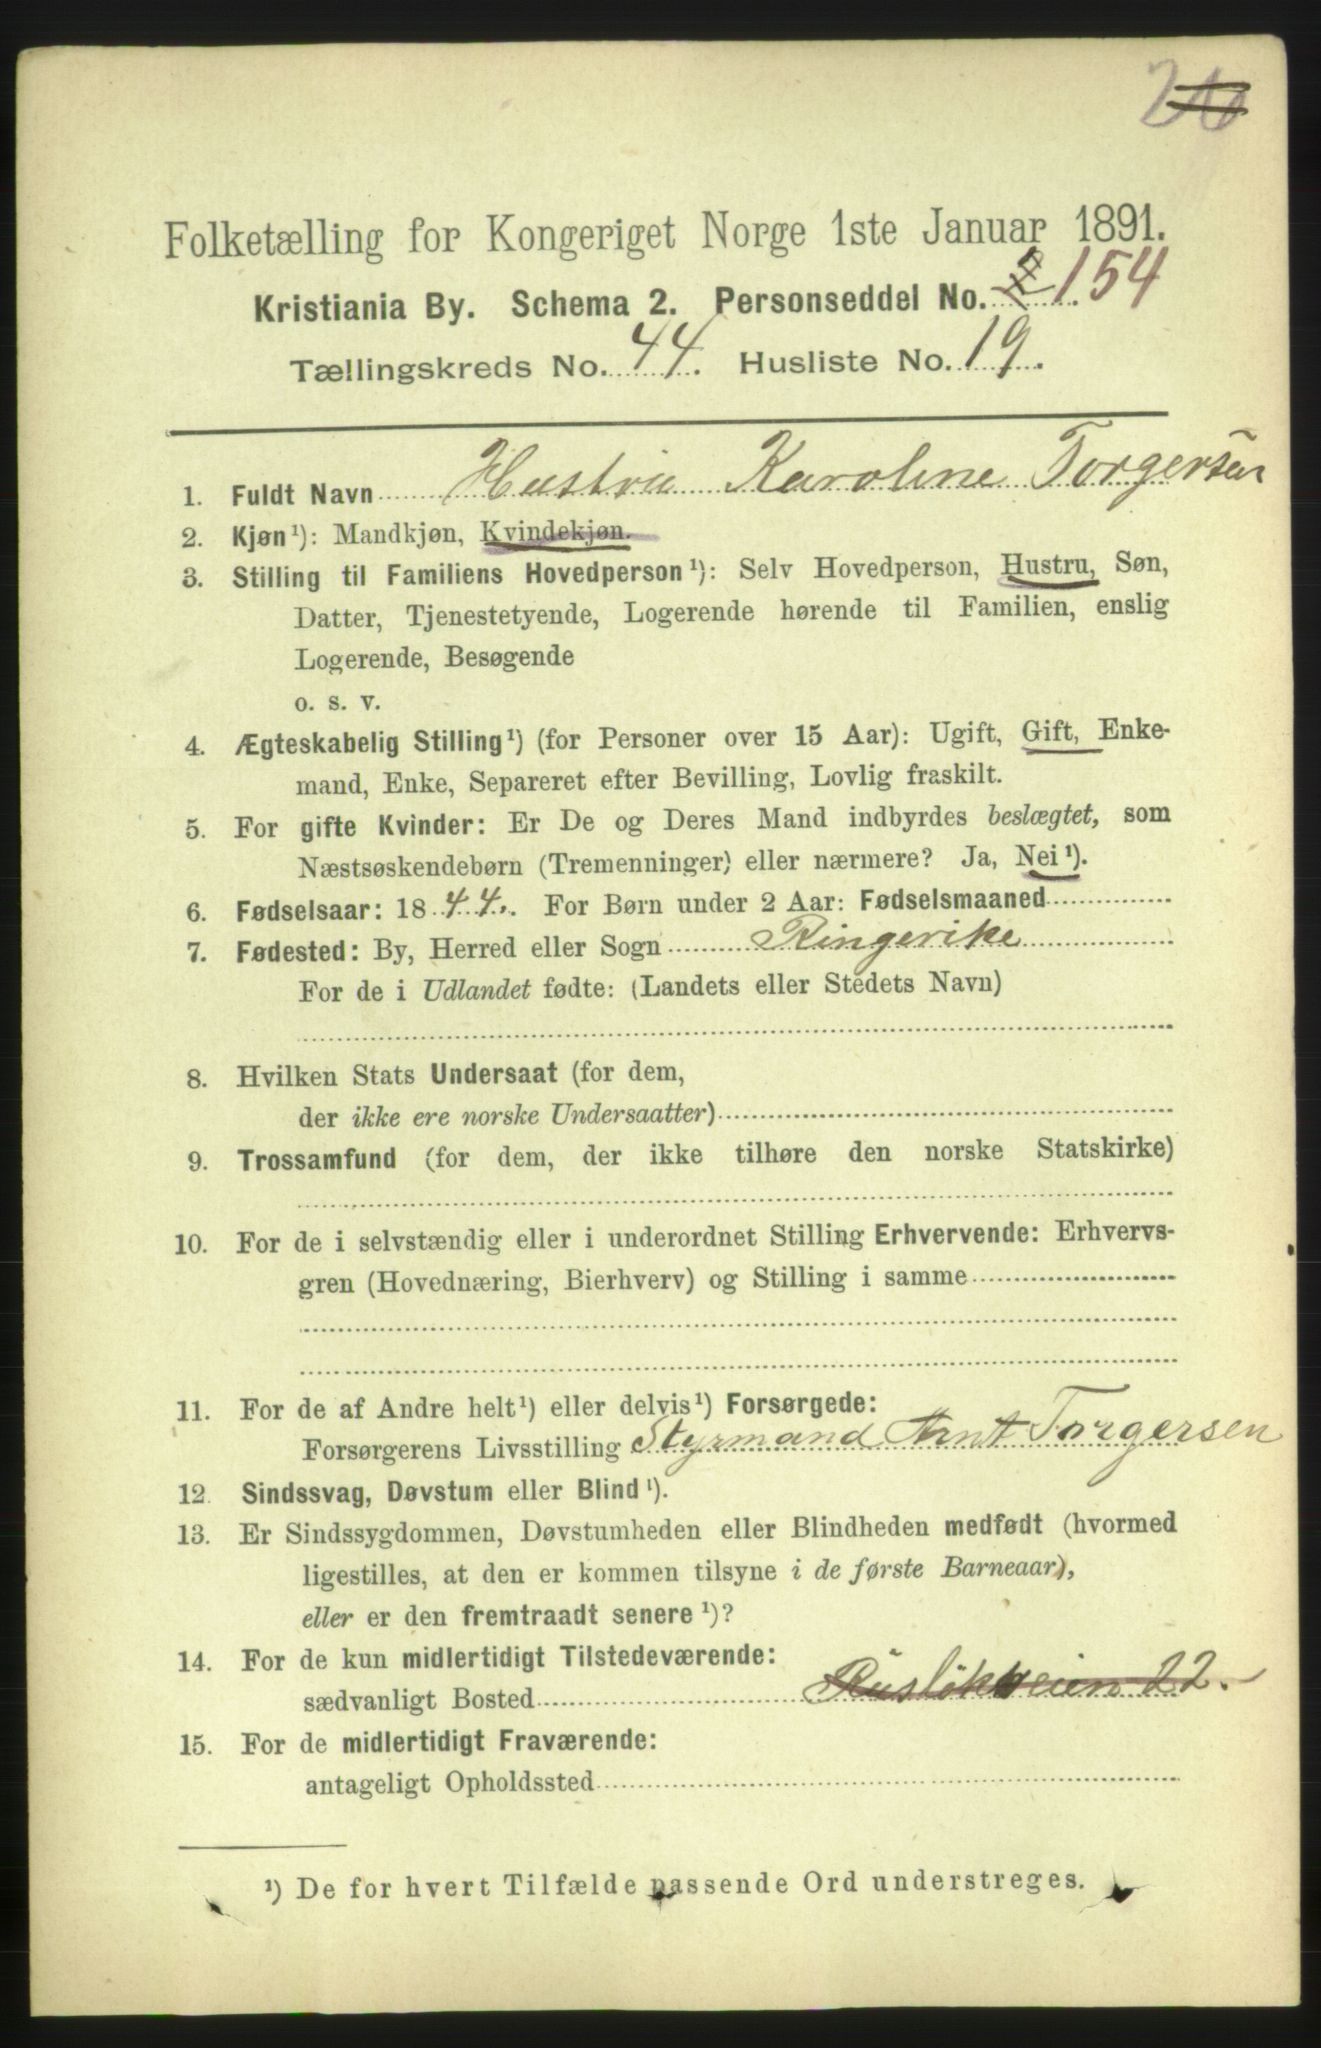 Folketælling for Kongeriget Norge 1ste Januar 1891.
Kristiania By. Schema 2. Personseddel No. 154
Tællingskreds No. 44. Husliste No. 19.
1. Fuldt Navn Hustru Karoline Torgersen
2. Kjøn¹): Mandkjøn, Kvindekjøn.
3. Stilling til Familiens Hovedperson¹): Selv Hovedperson, Hustru, Søn,
Datter, Tjenestetyende, Logerende hørende til Familien, enslig
Logerende, Besøgende
o. s. v.
4. Ægteskabelig Stilling¹) (for Personer over 15 Aar): Ugift, Gift, Enke-
mand, Enke, Separeret efter Bevilling, Lovlig fraskilt.
5. For gifte Kvinder: Er De og Deres Mand indbyrdes beslægtet, som
Næstsøskendebørn (Tremenninger) eller nærmere? Ja, Nei¹).
6. Fødselsaar: 1844. For Børn under 2 Aar: Fødselsmaaned
7. Fødested: By, Herred eller Sogn Ringerike
For de i Udlandet fødte: (Landets eller Stedets Navn)
8. Hvilken Stats Undersaat (for dem,
der ikke ere norske Undersaatter)
9. Trossamfund (for dem, der ikke tilhøre den norske Statskirke)
10. For de i selvstændig eller i underordnet Stilling Erhvervende: Erhvervs-
gren (Hovednæring, Bierhverv) og Stilling i samme
11. For de af Andre helt¹) eller delvis¹) Forsørgede:
Forsørgerens Livsstilling Styrmand Arnt Torgersen
12. Sindssvag, Døvstum eller Blind¹).
13. Er Sindssygdommen, Døvstumheden eller Blindheden medfødt (hvormed
ligestilles, at den er kommen tilsyne i de første Barneaar),
eller er den fremtraadt senere¹)?
14. For de kun midlertidigt Tilstedeværende:
sædvanligt Bosted Rusløkveien 22.
15. For de midlertidigt Fraværende:
antageligt Opholdssted
¹) De for hvert Tilfælde passende Ord understreges.